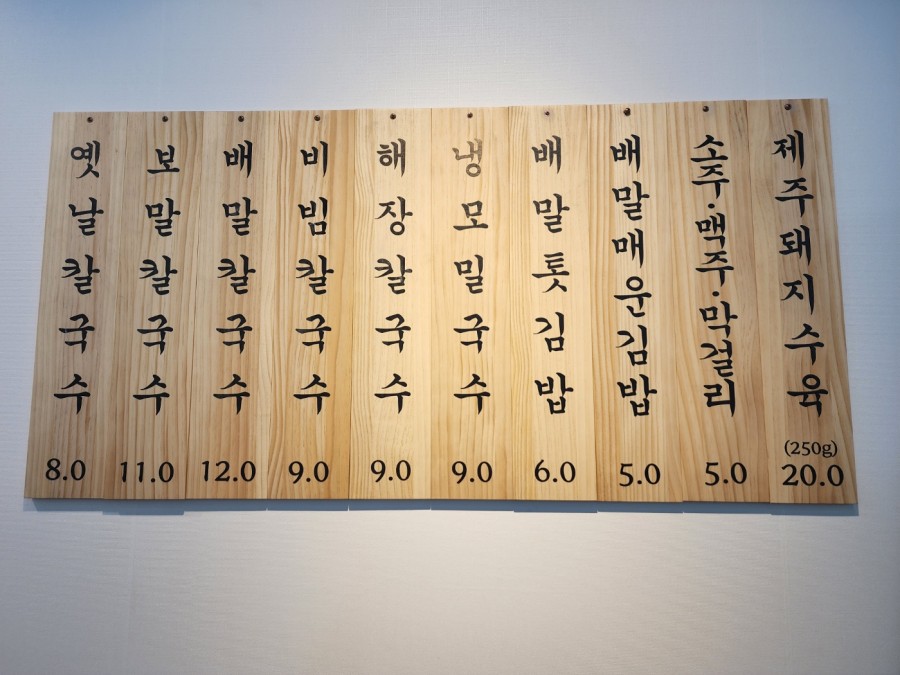 옛날칼국수
8.0
보말칼국수
11.0
배말칼국수
12.0
비빔칼국수
9.0
해장칼국수
9.0
냉모밀국수
9.0
배말톳김밥
6.0
배말매운김밥
5.0
소주·맥주·막걸리
5.0
제주돼지수육
(250g)
20.0